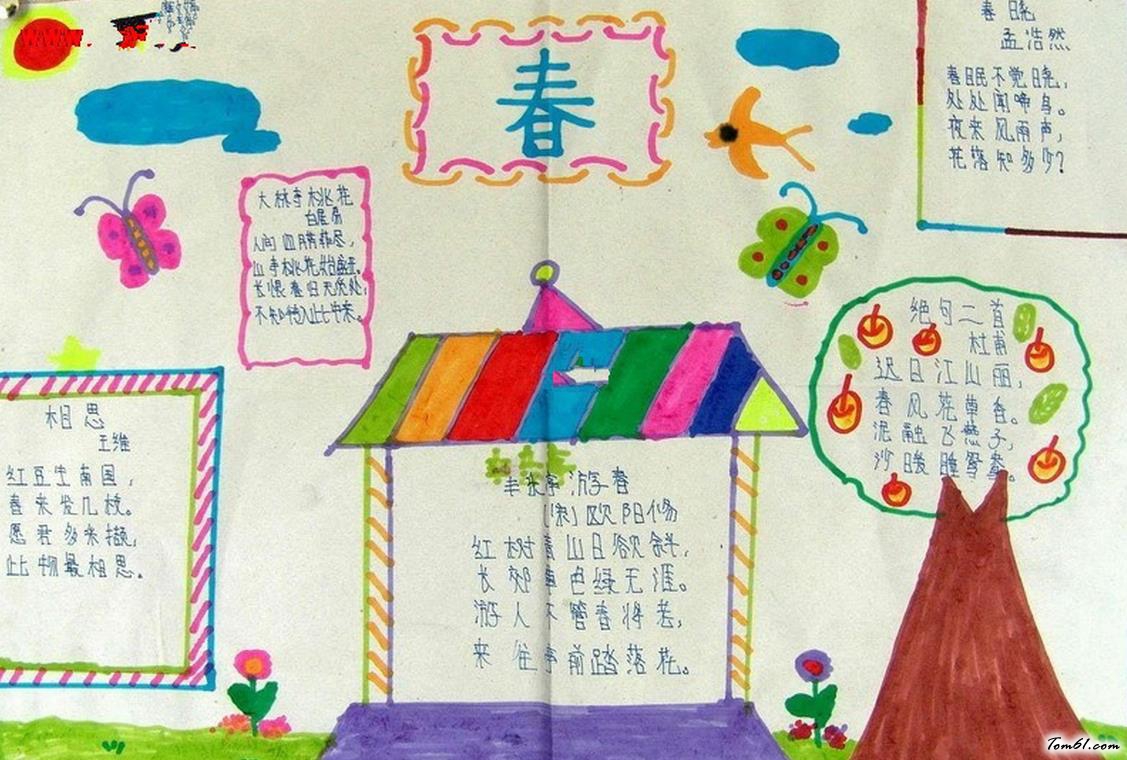 春
春晓
孟浩然
春眠不觉晓,
处处闻啼鸟。
夜来风雨声,
花落知多少?
大林寺桃花
白居易
人间四月芳菲尽,
山寺桃花始盛开。
长恨春归无觅处,
不知转入此中来。
绝句二首
杜甫
迟日江山丽,
春风花草香。
泥融飞燕子,
沙暖睡鸳鸯。
相思
王维
红豆生南国,
春来发几枝。
愿君多采撷,
此物最相思。
丰乐亭游春
(宋)欧阳修
红树青山日欲斜,
长郊草色绿无涯。
游人不管春将老,
来往亭前踏落花。
Tom61.com